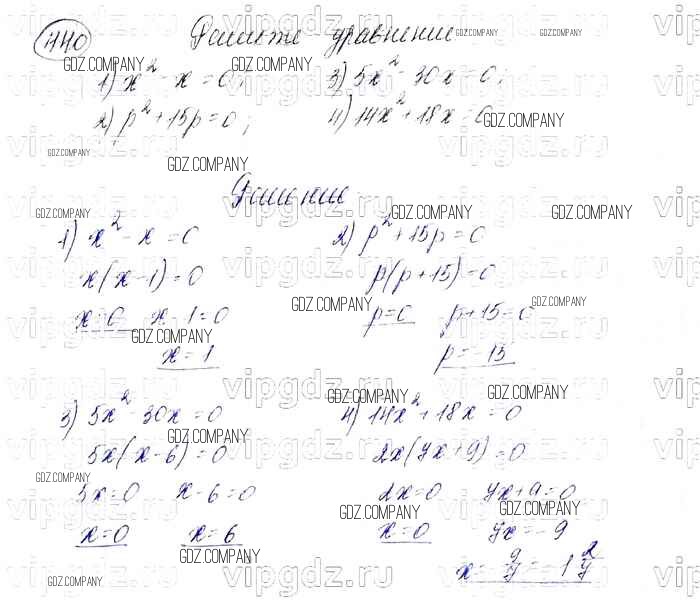 1440
Решите уравнение
1) x² - x = 0;
2) p² + 15p = 0;
3) 5x² - 30x = 0;
4) 14x² + 18x = 0
Решение
1) x² - x = 0
x(x-1) = 0
x = 0 x - 1 = 0
x = 1
2) p² + 15p = 0
p(p+15) = 0
p = 0 p + 15 = 0
p = -15
3) 5x² - 30x = 0
5x(x-6) = 0
5x = 0 x - 6 = 0
x = 0 x = 6
4) 14x² + 18x = 0
2x(7x+9) = 0
2x = 0 7x + 9 = 0
x = 0 7x = -9
x = -9/7 = -1 2/7
GDZ.COMPANY
vipgdz.ru